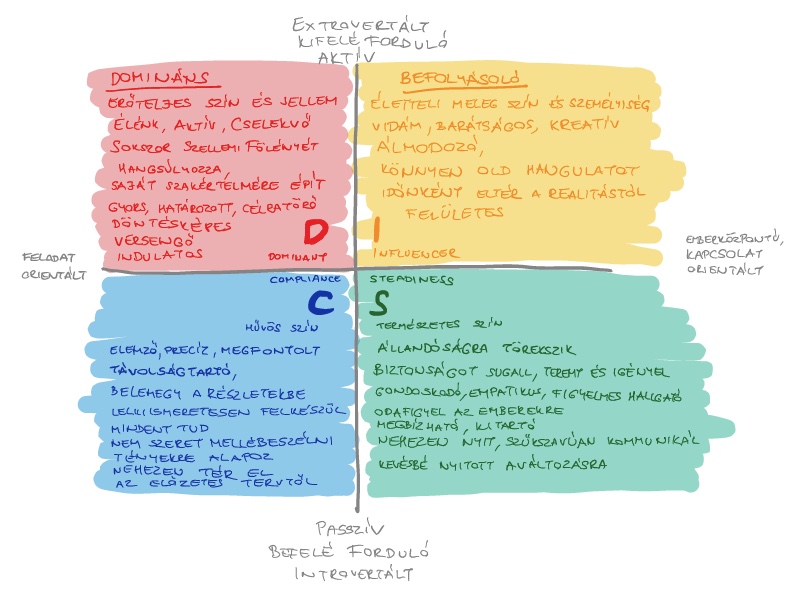 EXTROVERTÁLT
KIFELÉ FORDULÓ
AKTÍV
DOMINÁNS
ERŐTELJES SZÍN ÉS JELLEM
ÉLÉNK, AKTÍV, CSELEKVŐ
SOKSZOR SZELLEMI FÖLÉNYÉT
HANGSÚLYOZZA,
SAJÁT SZAKÉRTELMÉRE ÉPÍT
GYORS, HATÁROZOTT, CÉLRATÖRŐ
DÖNTÉSKÉPES
VERSENGŐ
INDULATOS
D
DOMINANT
BEFOLYÁSOLÓ
ÉLETTELI MELEG SZÍN ÉS SZEMÉLYISÉG
VIDÁM, BARÁTSÁGOS, KREATÍV
ÁLMODOZÓ,
KÖNNYEN OLD HANGULATOT
IDŐNKÉNT ELTÉR A REALITÁSTÓL
FELÜLETES
I
INFLUENCER
FELADAT
ORIENTÁLT
EMBERKÖZPONTÚ,
KAPCSOLAT
ORIENTÁLT
COMPLIANCE
C
HŰVÖS SZÍN
ELEMZŐ, PRECÍZ, MEGFONTOLT
TÁVOLSÁGTARTÓ,
BELEMEGY A RÉSZLETEKBE
LELKIISMERETESEN FELKÉSZÜL
MINDENT TUD
NEM SZERET MELLÉBESZÉLNI
TÉNYEKRE ALAPOZ
NEHEZEN TÉR EL
AZ ELŐZETES TERVTŐL
STEADINESS
S
TERMÉSZETES SZÍN
ÁLLANDÓSÁGRA TÖREKSZIK
BIZTONSÁGOT SUGALL, TEREMT ÉS IGÉNYEL
GONDOSKODÓ, EMPATIKUS, FIGYELMES HALLGATÓ
ODAFIGYEL AZ EMBEREKRE
MEGBÍZHATÓ, KITARTÓ
NEHEZEN NYIT, SZŰKSZAVÚAN KOMMUNIKÁL
KEVÉSBÉ NYITOTT A VÁLTOZÁSRA
PASSZÍV
BEFELÉ FORDULÓ
INTROVERTÁLT